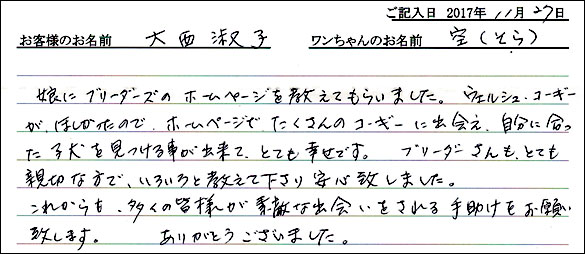 ご記入日 2017年 11月 27日
お客様のお名前 大西淑子 ワンちゃんのお名前 空(そら)
娘にブリーダーズのホームページを教えてもらいました。ウェルシュ・コーギー
が、ほしかったので、ホームページでたくさんのコーギーに出会え、自分に合っ
た子犬を見つける事が出来て、とても幸せです。 ブリーダーさんも、とても
親切な方で、いろいろと教えて下さり安心致しました。
これからも、多くの皆様が素敵な出会いをされる手助けをお願い
致します。 ありがとうございました。